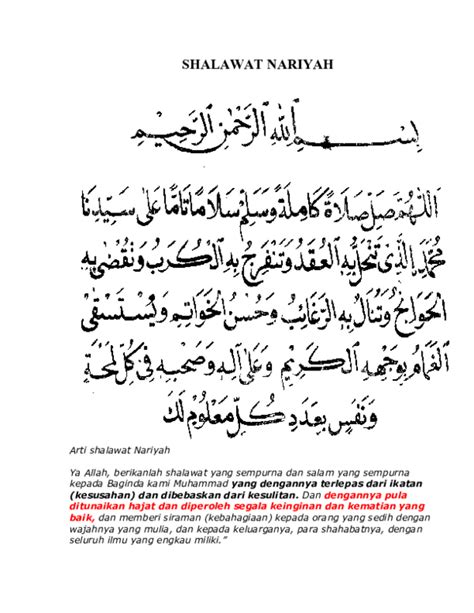 SHALAWAT NARIYAH
بِسْمِ اللهِ الرَّحْمٰنِ الرَّحِيْمِ
اَللّٰهُمَّ صَلِّ صَلَاةً كَامِلَةً وَسَلِّمْ سَلَامًا تَامًّا عَلٰى سَيِّدِنَا
مُحَمَّدِ الَّذِيْ تَنْحَلُّ بِهِ الْعُقَدُ وَتَنْفَرِجُ بِهِ الْكُرَبُ وَتُقْضٰى بِهِ
الْحَوَائِجُ وَتُنَالُ بِهِ الرَّغَائِبُ وَحُسْنُ الْخَوَاتِمِ وَيُسْتَسْقَى
الْغَمَامُ بِوَجْهِهِ الْكَرِيْمِ وَعَلٰى اٰلِهِ وَصَحْبِهِ فِيْ كُلِّ لَمْحَةٍ
وَنَفَسٍ بِعَدَدِ كُلِّ مَعْلُوْمٍ لَكَ
Arti shalawat Nariyah
Ya Allah, berikanlah shalawat yang sempurna dan salam yang sempurna
kepada Baginda kami Muhammad yang dengannya terlepas dari ikatan
(kesusahan) dan dibebaskan dari kesulitan. Dan dengannya pula
ditunaikan hajat dan diperoleh segala keinginan dan kematian yang
baik, dan memberi siraman (kebahagiaan) kepada orang yang sedih dengan
wajahnya yang mulia, dan kepada keluarganya, para shahabatnya, dengan
seluruh ilmu yang engkau miliki."